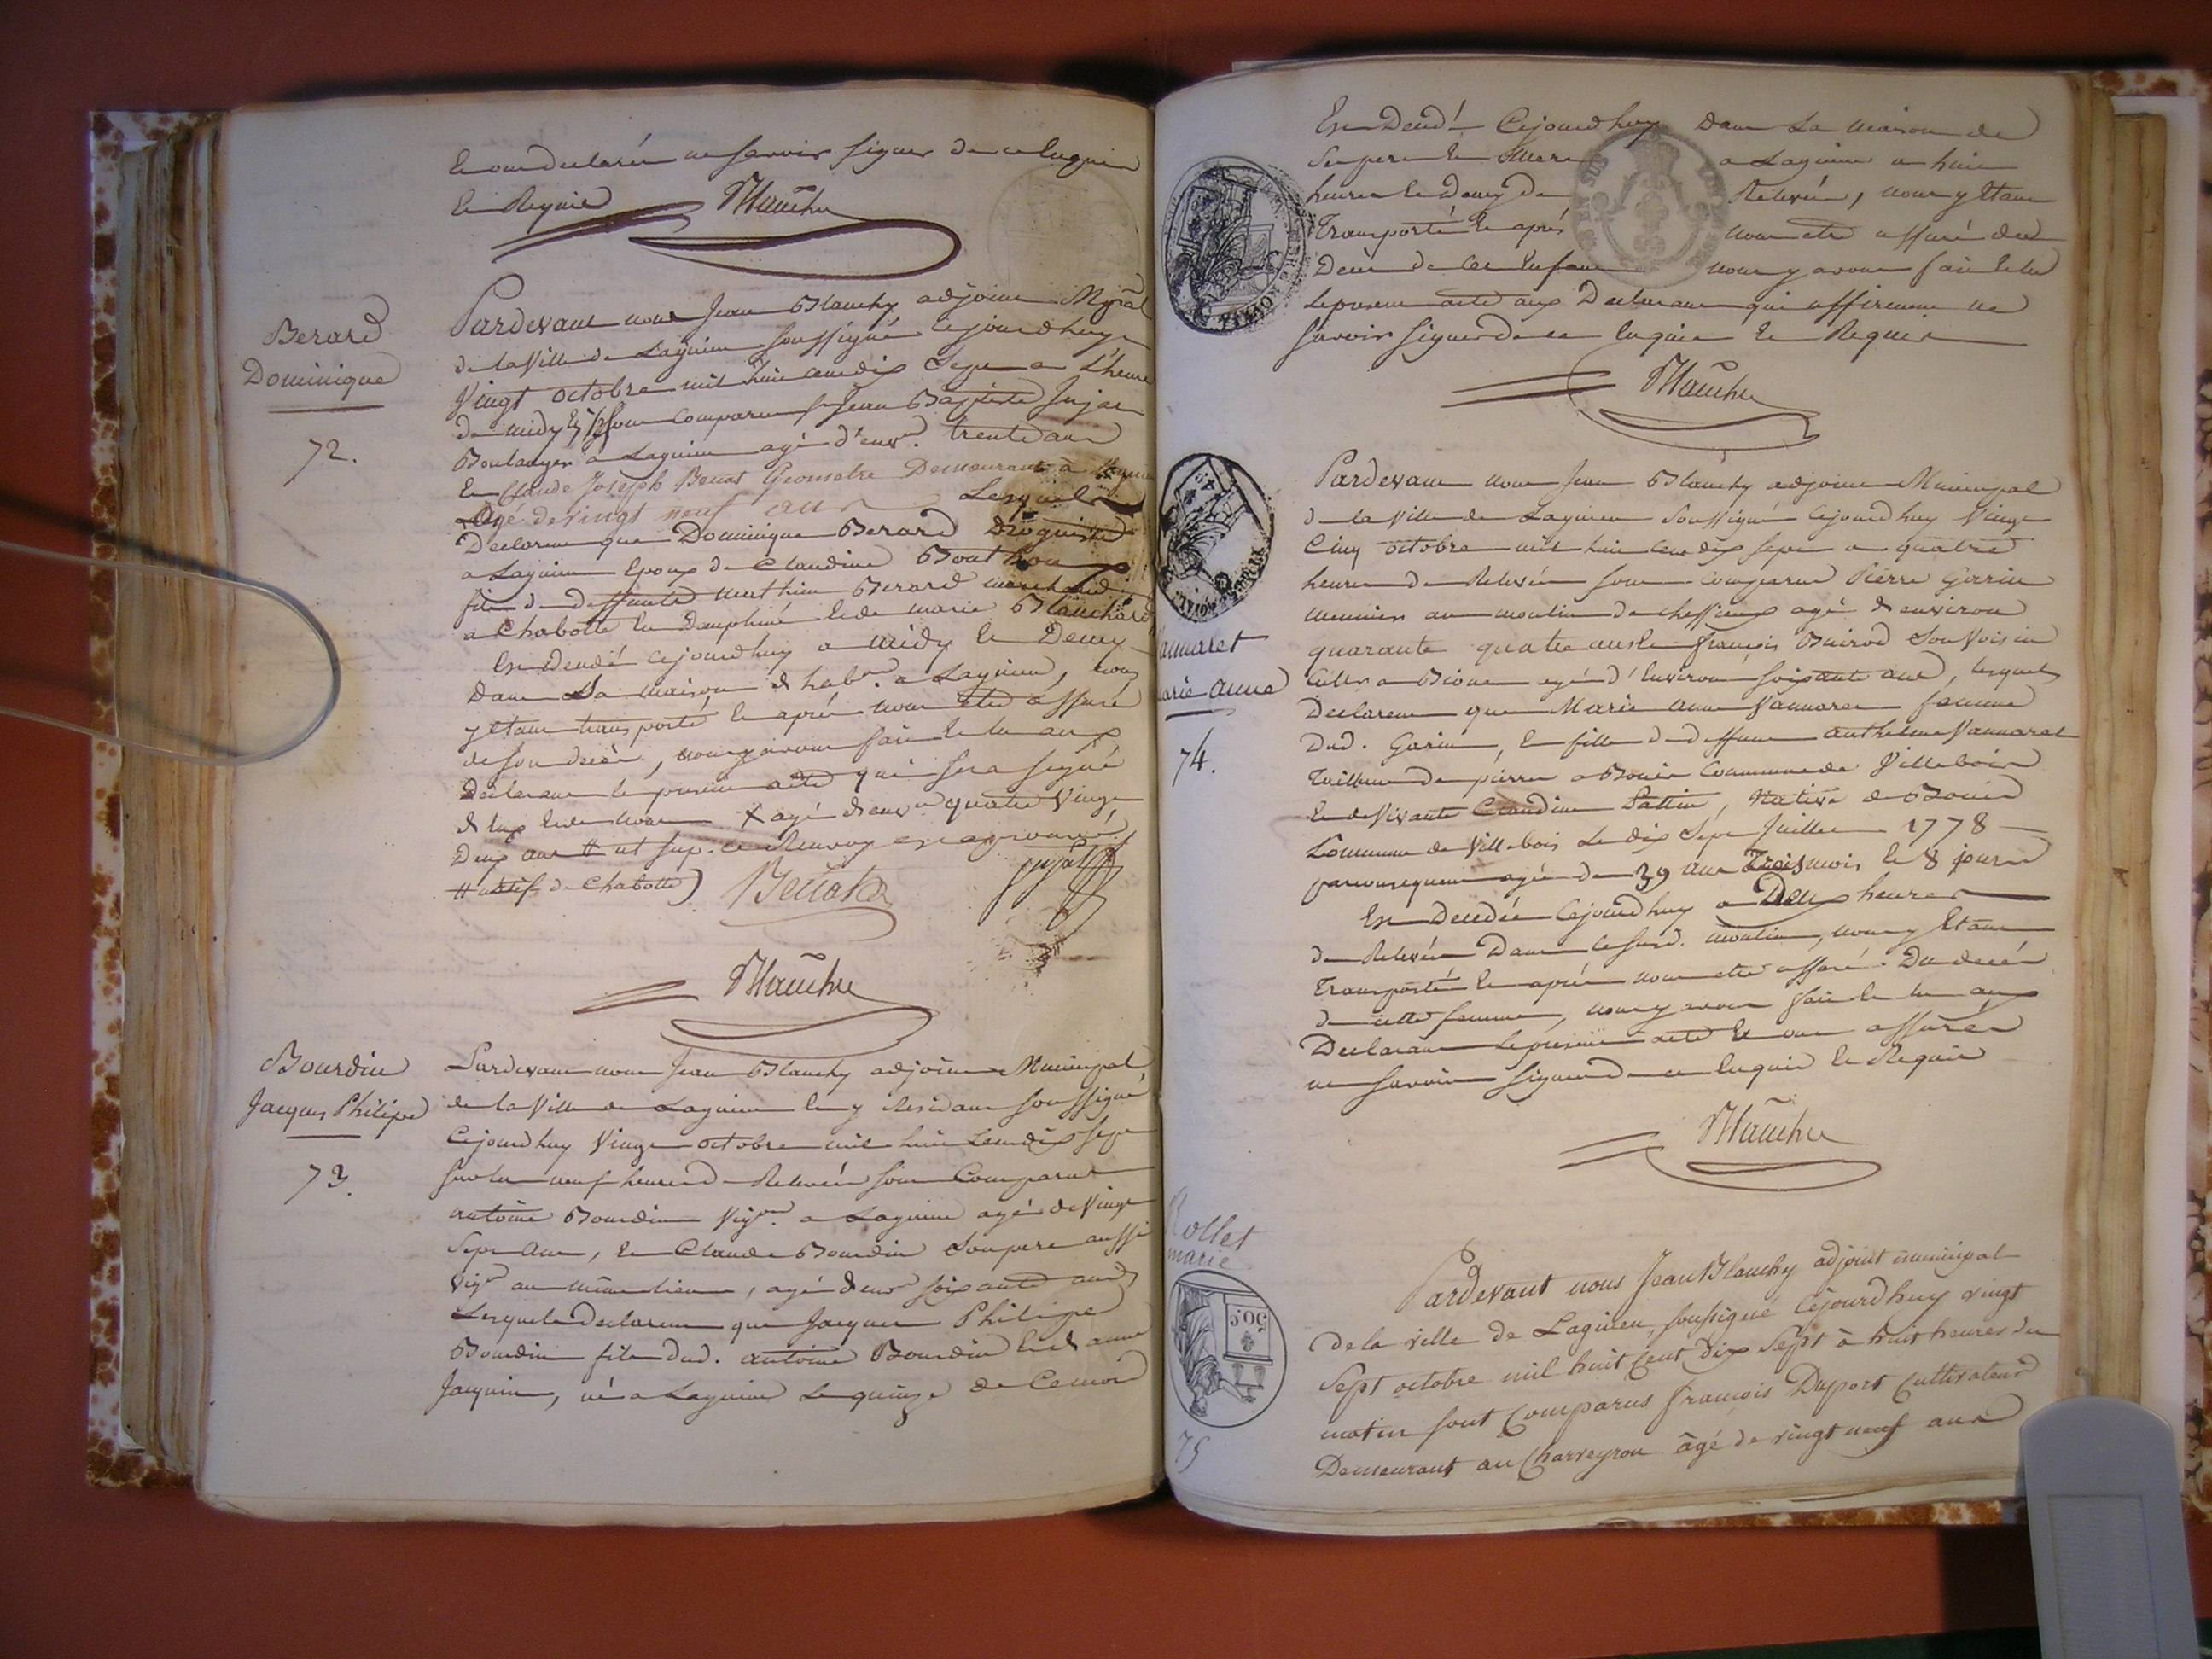 Et ont declarés ne savoir signer de ce Enquis
Et Requis Blanchy
Berard
Dominique
72.
Pardevant nous Jean Blanchy adjoint Mpal
de la Ville de Lagnieu soussigné Cejourdhuy
Vingt octobre mil huit cent dix Sept a L'heure
de midy sont comparus Jean Baptiste Jujat
Boulanger a Lagnieu agé d'envon. trente ans
Et Claude Joseph Benat Géometre Demeurant à Lagnieu
Agé de vingt neuf ans Lesquels
Declarent que Dominique Berard Droguiste
a Lagnieu Epoux de Claudine Bouthoux
fils de deffunts Mathieu Berard marchand
a Chabotte En Dauphiné Et de marie Blanchard
Est Décédé cejourdhuy a midy Et Demy
Dans Sa maison d'habon. a Lagnieu, nous
y étant transporté Et après nous être assuré
de son décès, nous y avons fait Et lu aux
declarans le present acte qui sera signé
d'Eux Et de nous X agé d'envon quatre Vingt
Deux ans # ut sup. ce Renvoy est approuvé
# natif de Chabotte) Benat Jujat
Blanchy
Bourdin
Jacques Philipe
73.
Pardevant nous Jean Blanchy adjoint Municipal
de la Ville de Lagnieu Et y Residant soussigné
Cejourdhuy Vingt octobre mil huit Cent dix sept
sur les neuf heures de Relevée sont Comparus
antoine Bourdin Vigon. a Lagnieu agé de Vingt
Sept Ans, Et Claude Bourdin Son pere aussi
Vigon au même lieu, agé d'env soixante ans
Lesquels Declarent que Jacques Philipe
Bourdin fils dud. antoine Bourdin Et d'anne
Jacquin, né a Lagnieu Le quinze de Ce mois
Est Décédé Cejourdhuy Dans La Maison de
Ses pere Et Mere a Lagnieu a huit
heures Et Demy de Relevée, nous y Etant
Transporté Et après nous être assuré du
Décès de Cet Enfant nous y avons fait Et lu
Le présent acte aux Declarans qui affirment ne
Savoir signer de ce Enquis Et Requis
Blanchy
Vannaret
Marie Anne
74.
Pardevant nous Jean Blanchy adjoint Municipal
de la Ville de Lagnieu Soussigné Cejourdhuy Vingt
Cinq octobre mil huit Cent dix sept a quatre
heures de Relevée sont comparus Pierre Garin
meunier au moulin de chessieux agé d'environ
quarante quatre ans Et françois Buirod Son Voisin
agé d'Environ soixante ans, lesquels
Declarent que Marie anne Vannaret femme
Dud. Garin, Et fille de deffunt anthelme Vannaret
Tailleur de pierre a Bouis Commune de Villebois
Et de Vivante Claudine Pattin, Native de Bouis
Commune de Villebois Le dix Sept Juillet 1778
par conséquent agée de 39 ans Trois mois Et 8 jours
Est Décédée Cejourdhuy a Deux heures
de Relevée Dans Le susd. moulin, nous y Etant
Transporté Et après nous être assuré Du décès
de cette femme, nous y avons fait Et lu aux
Declarans Le présent acte Et ont assurés
ne Savoir signer de ce Enquis Et Requis
Blanchy
Rollet
marie
50 C
75
Pardevant nous Jean Blanchy adjoint municipal
de la ville de Lagnieu, soussigné Cejourdhuy vingt
Sept octobre mil huit Cent Dix Sept à huit heures du
matin sont Comparus françois Duport Cultivateur
Demeurant au Charveyron âgé de vingt neuf ans